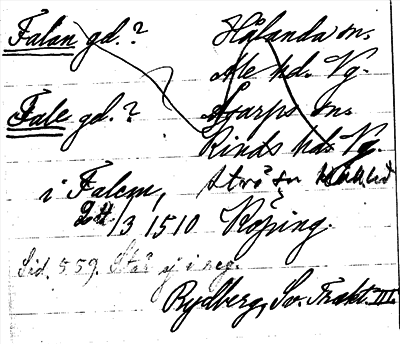 Falan gd.? Hålanda sn.
Ale hd. Vg.
Fale gd.? Acarps sn.
Kinds hd. Vg.
i Falem, Strö sn
24/3 1510 Köping.
Sid. 559. Står ej i reg.
Rydberg, Sv. Trakt. III.